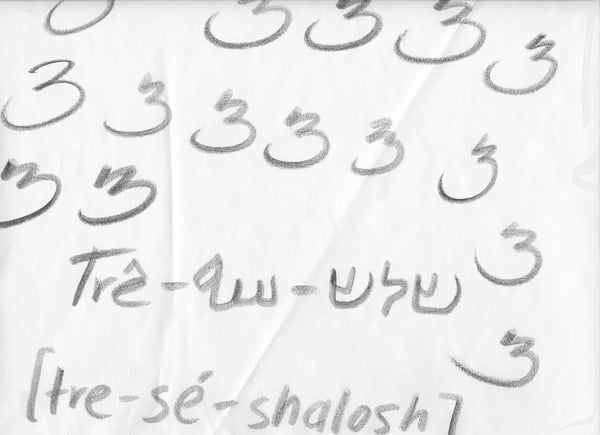 3 3 3 3 3
3 3 3 3 3 3
3 3
3
Trê-سه-שלש
3
[tre-sé-shalosh]